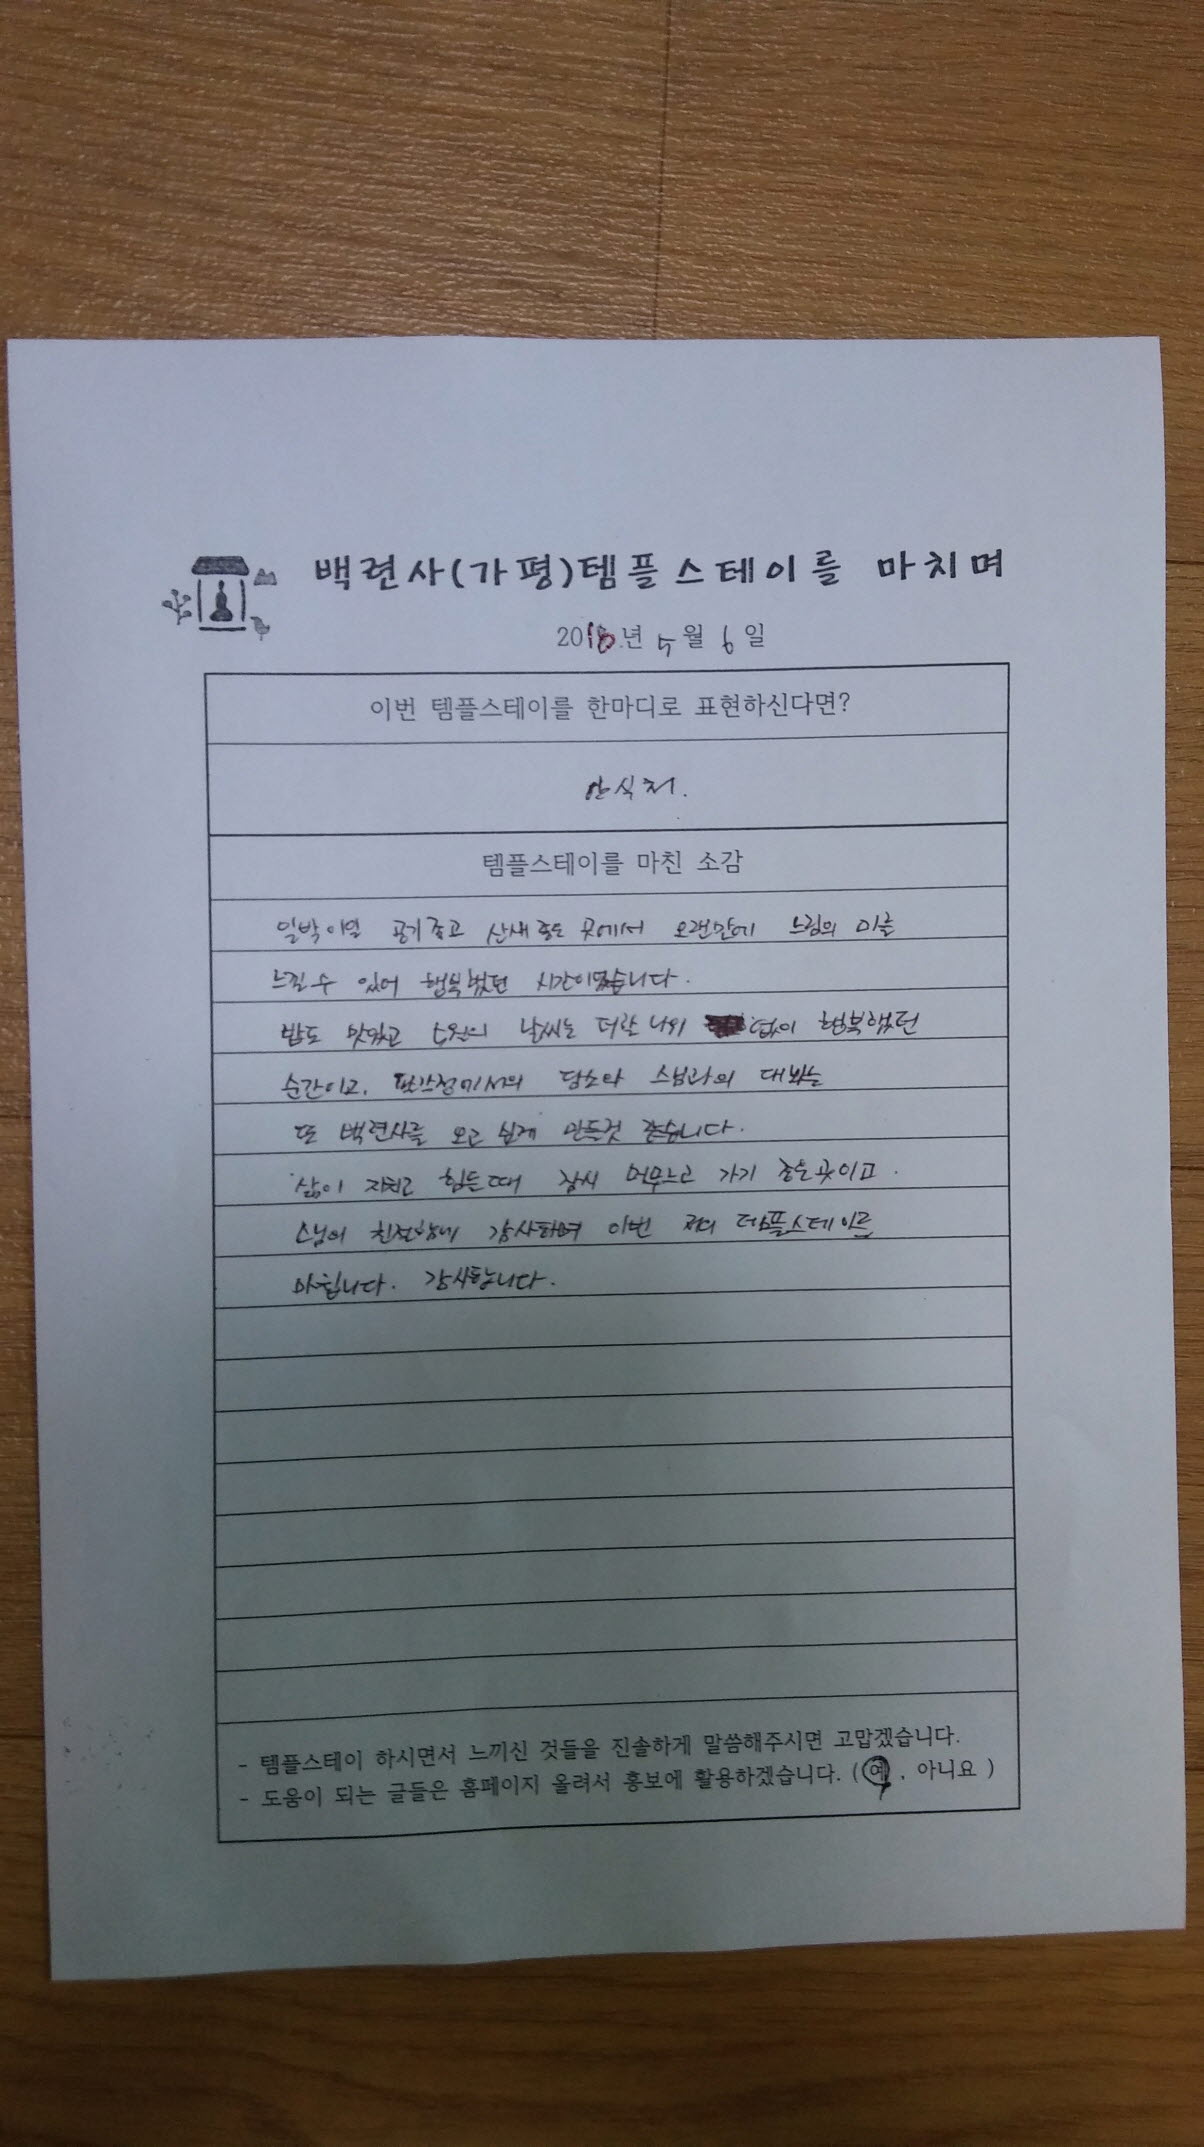 백련사(가평)템플스테이를 마치며
2018년 5월 6일
이번 템플스테이를 한마디로 표현하신다면?
안식처.
템플스테이를 마친 소감
일박이일 공기좋고 산새 좋은 곳에서 오랜만에 느림의 미를
느낄 수 있어 행복했던 시간이였습니다.
밥도 맛있고 5월의 날씨는 더할 나위 없이 행복했던
순간이고, 에서의 담소와 스님과의 대화는
또 백련사를 오고 싶게 만든것 같습니다.
삶이 지치고 힘든때 잠시 머무르고 가기 좋은곳이고.
스님의 친절함에 감사하며 이번 저의 템플스테이를
마칩니다. 감사합니다.
- 템플스테이 하시면서 느끼신 것들을 진솔하게 말씀해주시면 고맙겠습니다.
- 도움이 되는 글들은 홈페이지 올려서 홍보에 활용하겠습니다. (예, 아니요 )